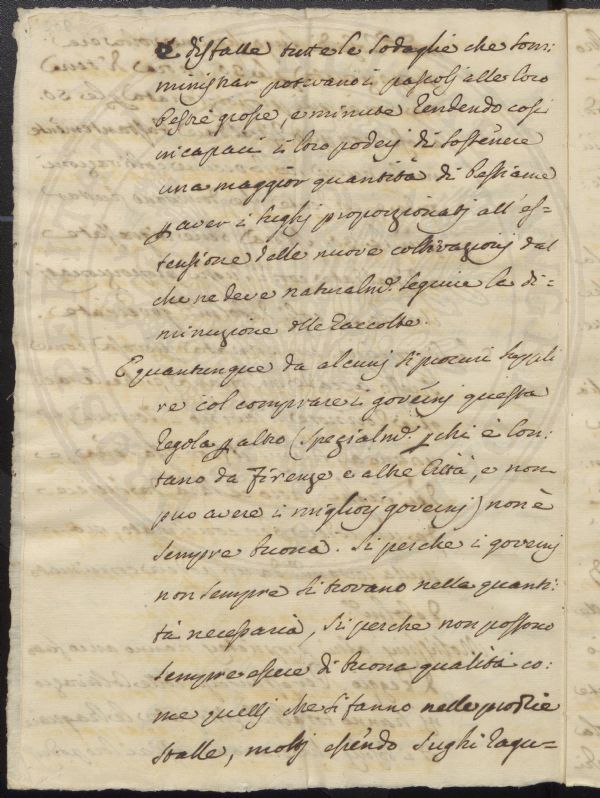 e disfatte tutte le sodaglie che som:
ministrar potevano i pascolj alle loro
bestie grosse, e minute rendendo così
incapaci i loro poderj di sostenere
una maggior quantità di bestiame
p aver i sughj proporzionatj all' es-
tensione delle nuove coltivazionj dal
che ne deve naturalm.e seguire la di-
minuzione dlle raccolte.
E quantunque da alcunj si procuri suppli
re col comprare i governj questa
regola p altro (spezialm.e p chi è lon-
tano da Firenze e altre Città, e non
può avere i migliorj governj) non è
sempre buona. Si perche i governj
non sempre si trovano nella quanti:
tà necessaria, si perche non possono
sempre essere di buona qualità co:
me quellj che si fanno nelle proprie
stalle, moltj essendo sughi ragu-